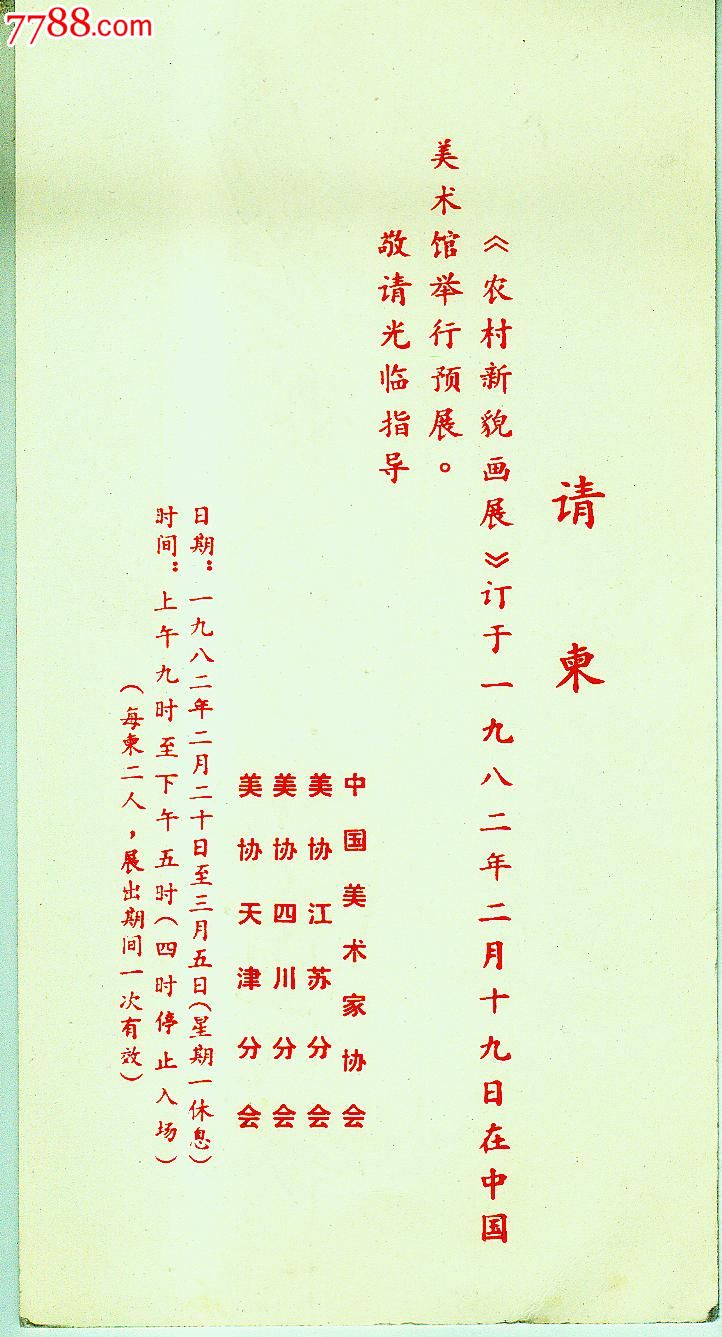 7788.com
请柬
《农村新貌画展》订于一九八二年二月十九日在中国
美术馆举行预展。
敬请光临指导
中国美术家协会
美协江苏分会
美协四川分会
美协天津分会
日期：一九八二年二月二十日至三月五日（星期一休息）
时间：上午九时至下午五时（四时停止入场）
（每柬二人，展出期间一次有效）